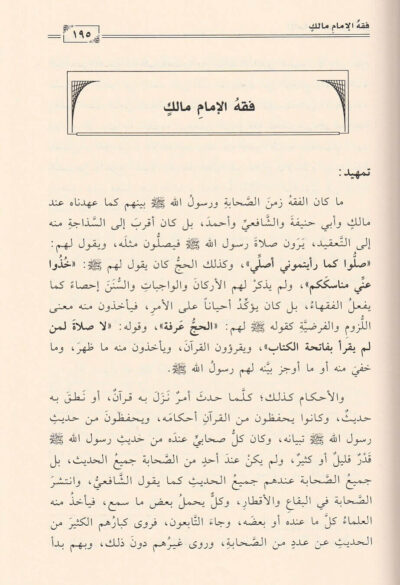 فقهُ الإمام مالكٍ
١٩٥
فقهُ الإمامِ مالكٍ
تمهيد:
ما كان الفقهُ زمنَ الصَّحابةِ ورسولُ الله ﷺ بينهم كما عهدناه عند
مالكٍ وأبي حنيفةَ والشَّافعيِّ وأحمدَ، بل كان أقربَ إلى السَّذاجةِ منه
إلى التَّعقيد، يَرَون صلاةَ رسولِ الله ﷺ فيصلُّون مثلَه، ويقول لهم:
«صلُّوا كما رأيتموني أصلِّي»، وكذلك الحجُّ كان يقول لهم ﷺ: «خُذُوا
عنِّي مناسكَكم»، ولم يذكرْ لهم الأركانَ والواجباتِ والسُّنَنَ إحصاءً كما
يفعلُ الفقهاءُ، بل كان يؤكِّدُ أحياناً على الأمرِ، فيأخذون منه معنى
اللُّزومِ والفرضيَّةِ كقوله ﷺ لهم: «الحجُّ عَرفة»، وقوله: «لا صلاةَ لمن
لم يقرأْ بفاتحة الكتاب»، ويقرؤون القرآنَ، ويأخذون منه ما ظهرَ، وما
خفيَ منه أو ما أوجز بيَّنه لهم رسولُ الله ﷺ.
والأحكام كذلك؛ كلَّما حدثَ أمرٌ نَزَلَ به قرآنٌ، أو نَطَقَ به
حديثٌ، وكانوا يحفظون من القرآنِ أحكامَه، ويحفظونَ من حديثِ
رسول الله ﷺ تبيانه، وكان كلُّ صحابيٍّ عندَه من حديثِ رسول الله ﷺ
قَدْرٌ قليلٌ أو كثيرٌ، ولم يكنْ عندَ أحدٍ من الصَّحابة جميعُ الحديث، بل
جميعُ الصَّحابة عندهم جميعُ الحديثِ كما يقول الشَّافعيُّ، وانتشرَ
الصَّحابة في البقاعِ والأقطارِ، وكلٌّ يحملُ بعضَ ما سمع، فيأخذُ منه
العلماءُ كلَّ ما عنده أو بعضَه، وجاءَ التَّابعون، فروى كبارُهم الكثيرَ من
الحديثِ عن عددٍ من الصَّحابةِ، وروى غيرُهم دونَ ذلك، وبهم بدأ